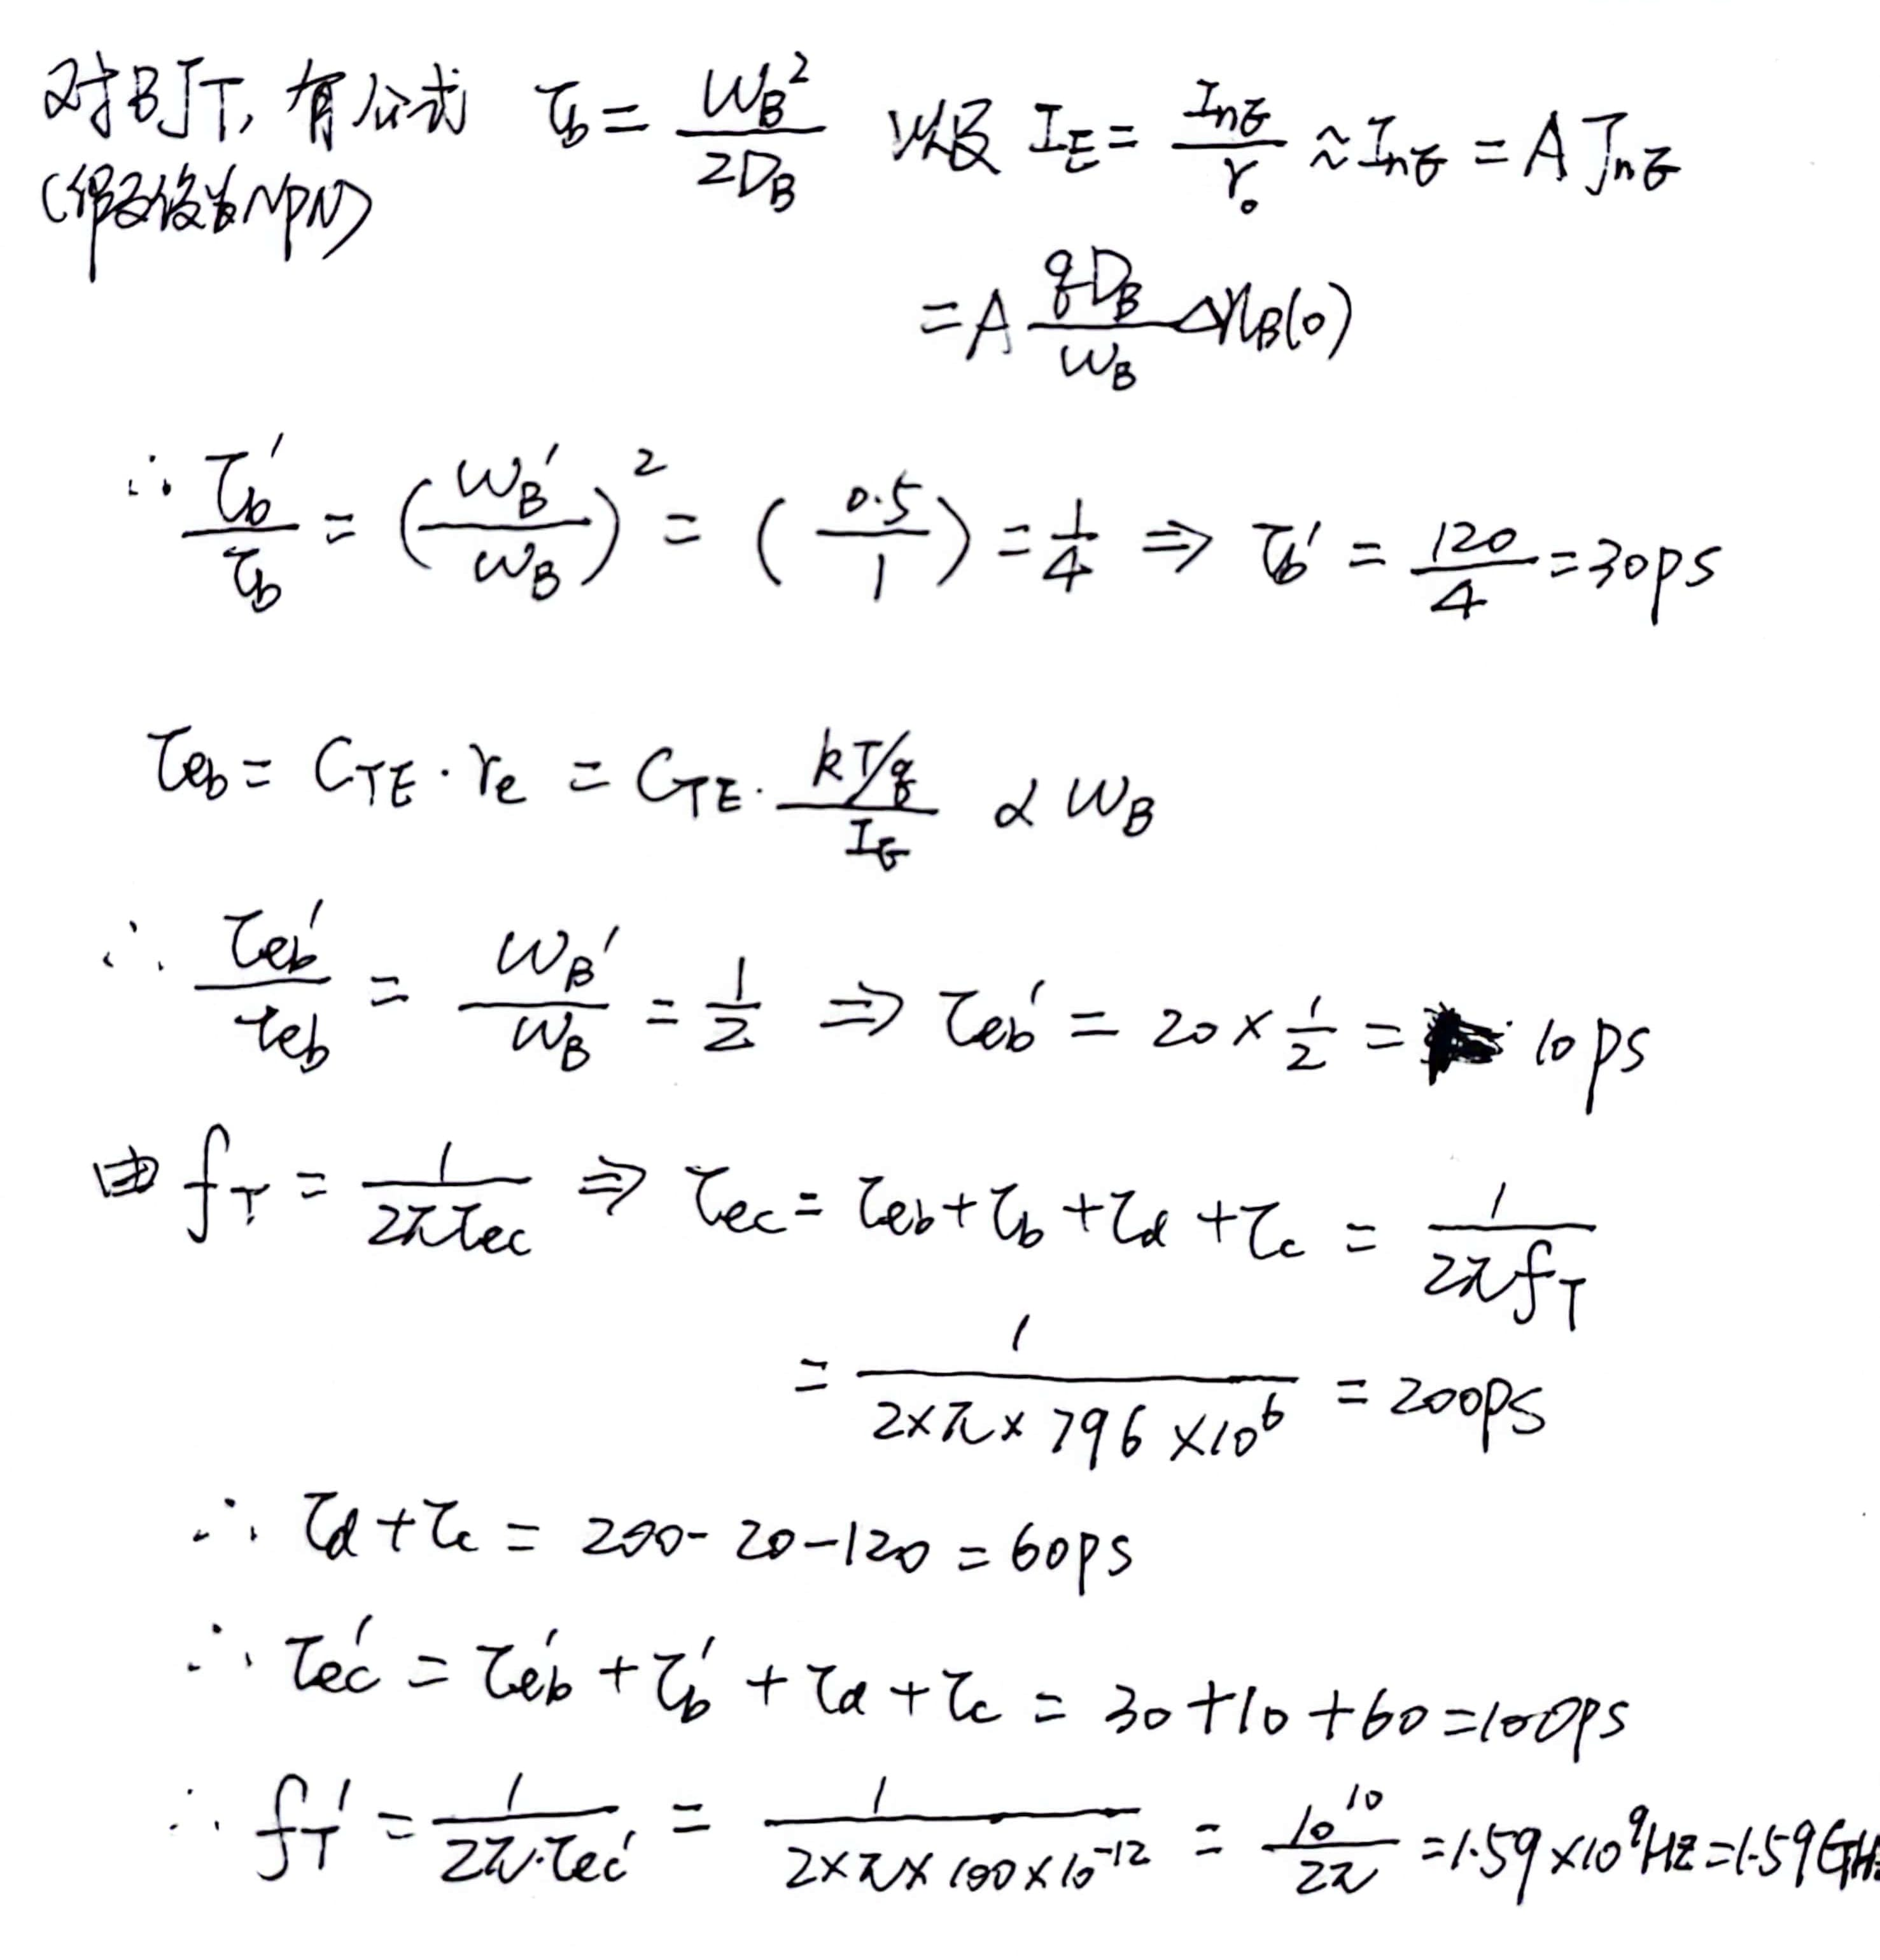 对BJT, 有公式 τb = WB²/2DB 以及 IE = InE/γ₀ ≈ InE = A JnE
(假设为NPN)
= A qDB/WB ΔnB(0)
∴ τb'/τb = (WB'/WB)² = (0.5/1) = 1/4 ⇒ τb' = 120/4 = 30ps
τeb = CTE · re = CTE · kT/q/IE ∝ WB
∴ τeb'/τeb = WB'/WB = 1/2 ⇒ τeb' = 20 × 1/2 = 10ps
由 fT = 1/2πτec ⇒ τec = τeb + τb + τd + τc = 1/2πfT
= 1/2×π×796×10⁶ = 200ps
∴ τd + τc = 200 - 20 - 120 = 60ps
∴ τec' = τeb' + τb' + τd + τc = 30 + 10 + 60 = 100ps
∴ fT' = 1/2π·τec' = 1/2×π×100×10⁻¹² = 10¹⁰/2π = 1.59×10⁹Hz = 1.59GHz